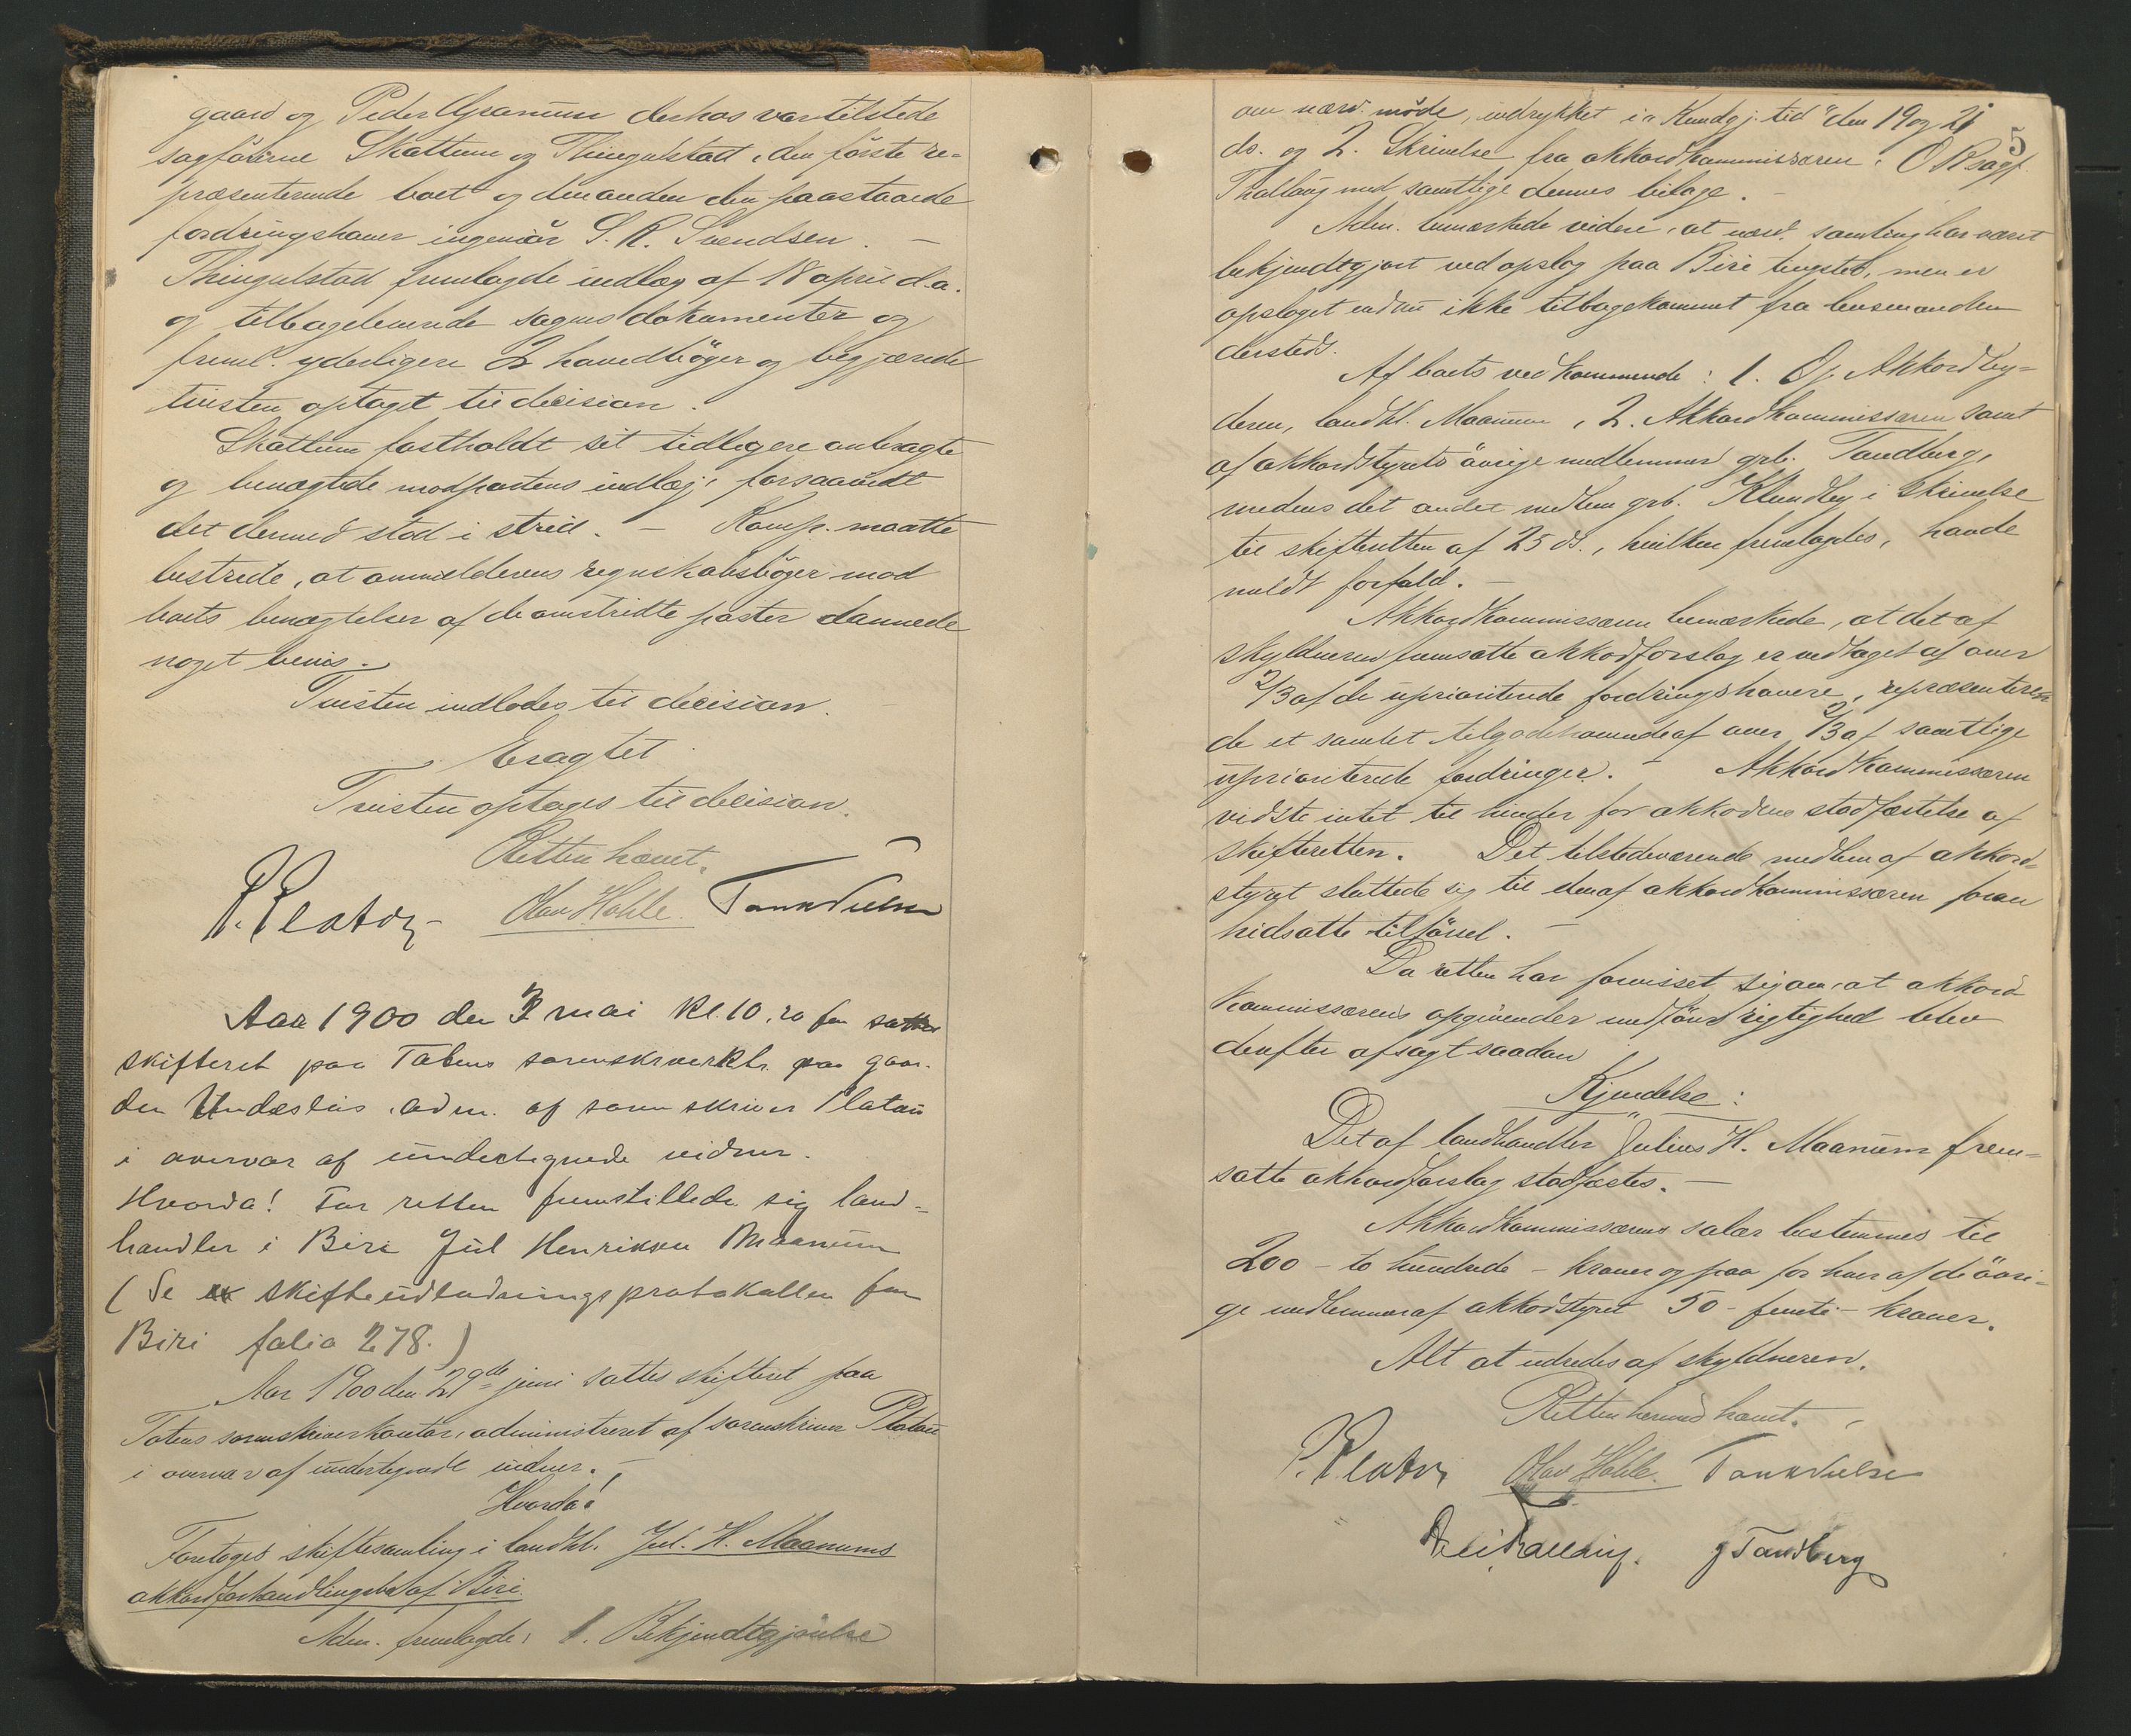 gaard og Peder Granum derhos var tilstede
sagførerne Skattum og Thingulstad, den første re-
præsenterende boet og den anden den paastaaede
fordringshaver ingeniør S. R. Svendsen. –
Thingulstad fremlagde indlæg af 18 april d.a.
og tilbageleverede sagens dokumenter og
freml. yderligere 2 hovedbøger og begjærede
tvisten optaget til decision.
Skattum fastholdt sit tidligere anbragte
og benægtede modpartens indlæg, forsaavidt
det dermed stod i strid. – Komp. maatte
bestride, at anmelderens regnskabsbøger mod
boets benægtelser af de omstridte poster dannede
noget bevis.
Tvisten indlodes til decision.
Eragtet
Tvisten optages til decision.
Retten hævet.
P. Platou Olav Hohle. Tank Nielsen
Aar 1900 den 3 mai kl. 10.20 fm sattes
skifteret paa Totens sorenskriverktr. paa gaar-
den Undeslös, adm. af sorenskriver Platou
i overvær af undertegnede vidner.
Hvorda! For retten fremstillede sig land-
handler i Biri Jul Henriksen Maanum
(Se skifteudlodningsprotokollen for
Biri folio 278.)
Aar 1900 den 29de juni sattes skifteret paa
Totens sorenskriverkontor, administreret af sorenskriver Platou
i overvær af undertegnede vidner. –
Hvorda!
Foretoges skiftesamling i landhl. Jul. H. Maanums
akkordforhandlingsbo af Biri.
Adm. fremlagde: 1. Bekjendtgjørelse
5
om nærv. møde, indrykket i "Kundgj. tid" den 19 og 21
ds. og 2. Skrivelse fra akkordkommissæren, O R sagf.
Thallaug med samtlige dennes bilage. –
Adm. bemærkede videre, at nærv. samling har været
bekjendtgjort ved opslag paa Biri tingsted, men er
opslaget endnu ikke tilbagekommet fra lensmanden
dersteds.
Af boets vedkommende: 1. Og Akkordby-
deren, landhl. Maanum, 2. Akkordkommissæren samt
af akkordstyrets øvrige medlemmer grb. Tandberg,
medens det andet medlem grb. Klundby i skrivelse
til skifteretten af 25 ds., hvilken fremlagdes, havde
meldt forfald. –
Akkordkommissæren bemærkede, at det af
skyldneren fremsatte akkordforslag er vedtaget af over
2/3 af de uprioriterede fordringshavere, repræsenteren
de et samlet tilgodehavende af over 2/3 af samtlige
uprioriterede fordringer. – Akkordkommissæren
vidste intet til hinder for akkordens stadfæstelse af
skifteretten. Det tilstedeværende medlem af akkord-
styret sluttede sig til den af akkordkommissæren foran
hidsatte tilførsel. –
Da retten har forvisset sig om, at akkord
kommissærens opgivender medfører rigtighed blev
derefter afsagt saadan
Kjendelse:
Det af landhandler Julius H. Maanum frem-
satte akkordforslag stadfæstes. –
Akkordkommissærens salær bestemmes til
200 – to hundrede – kroner og paa for hver af de øvri-
ge medlemmer af akkordstyret 50 – femti – kroner.
Alt at udredes af skyldneren.
Retten hermed hævet.
P. Platou Olav Hohle. Tank Nielsen
Thallaug. J Tandberg